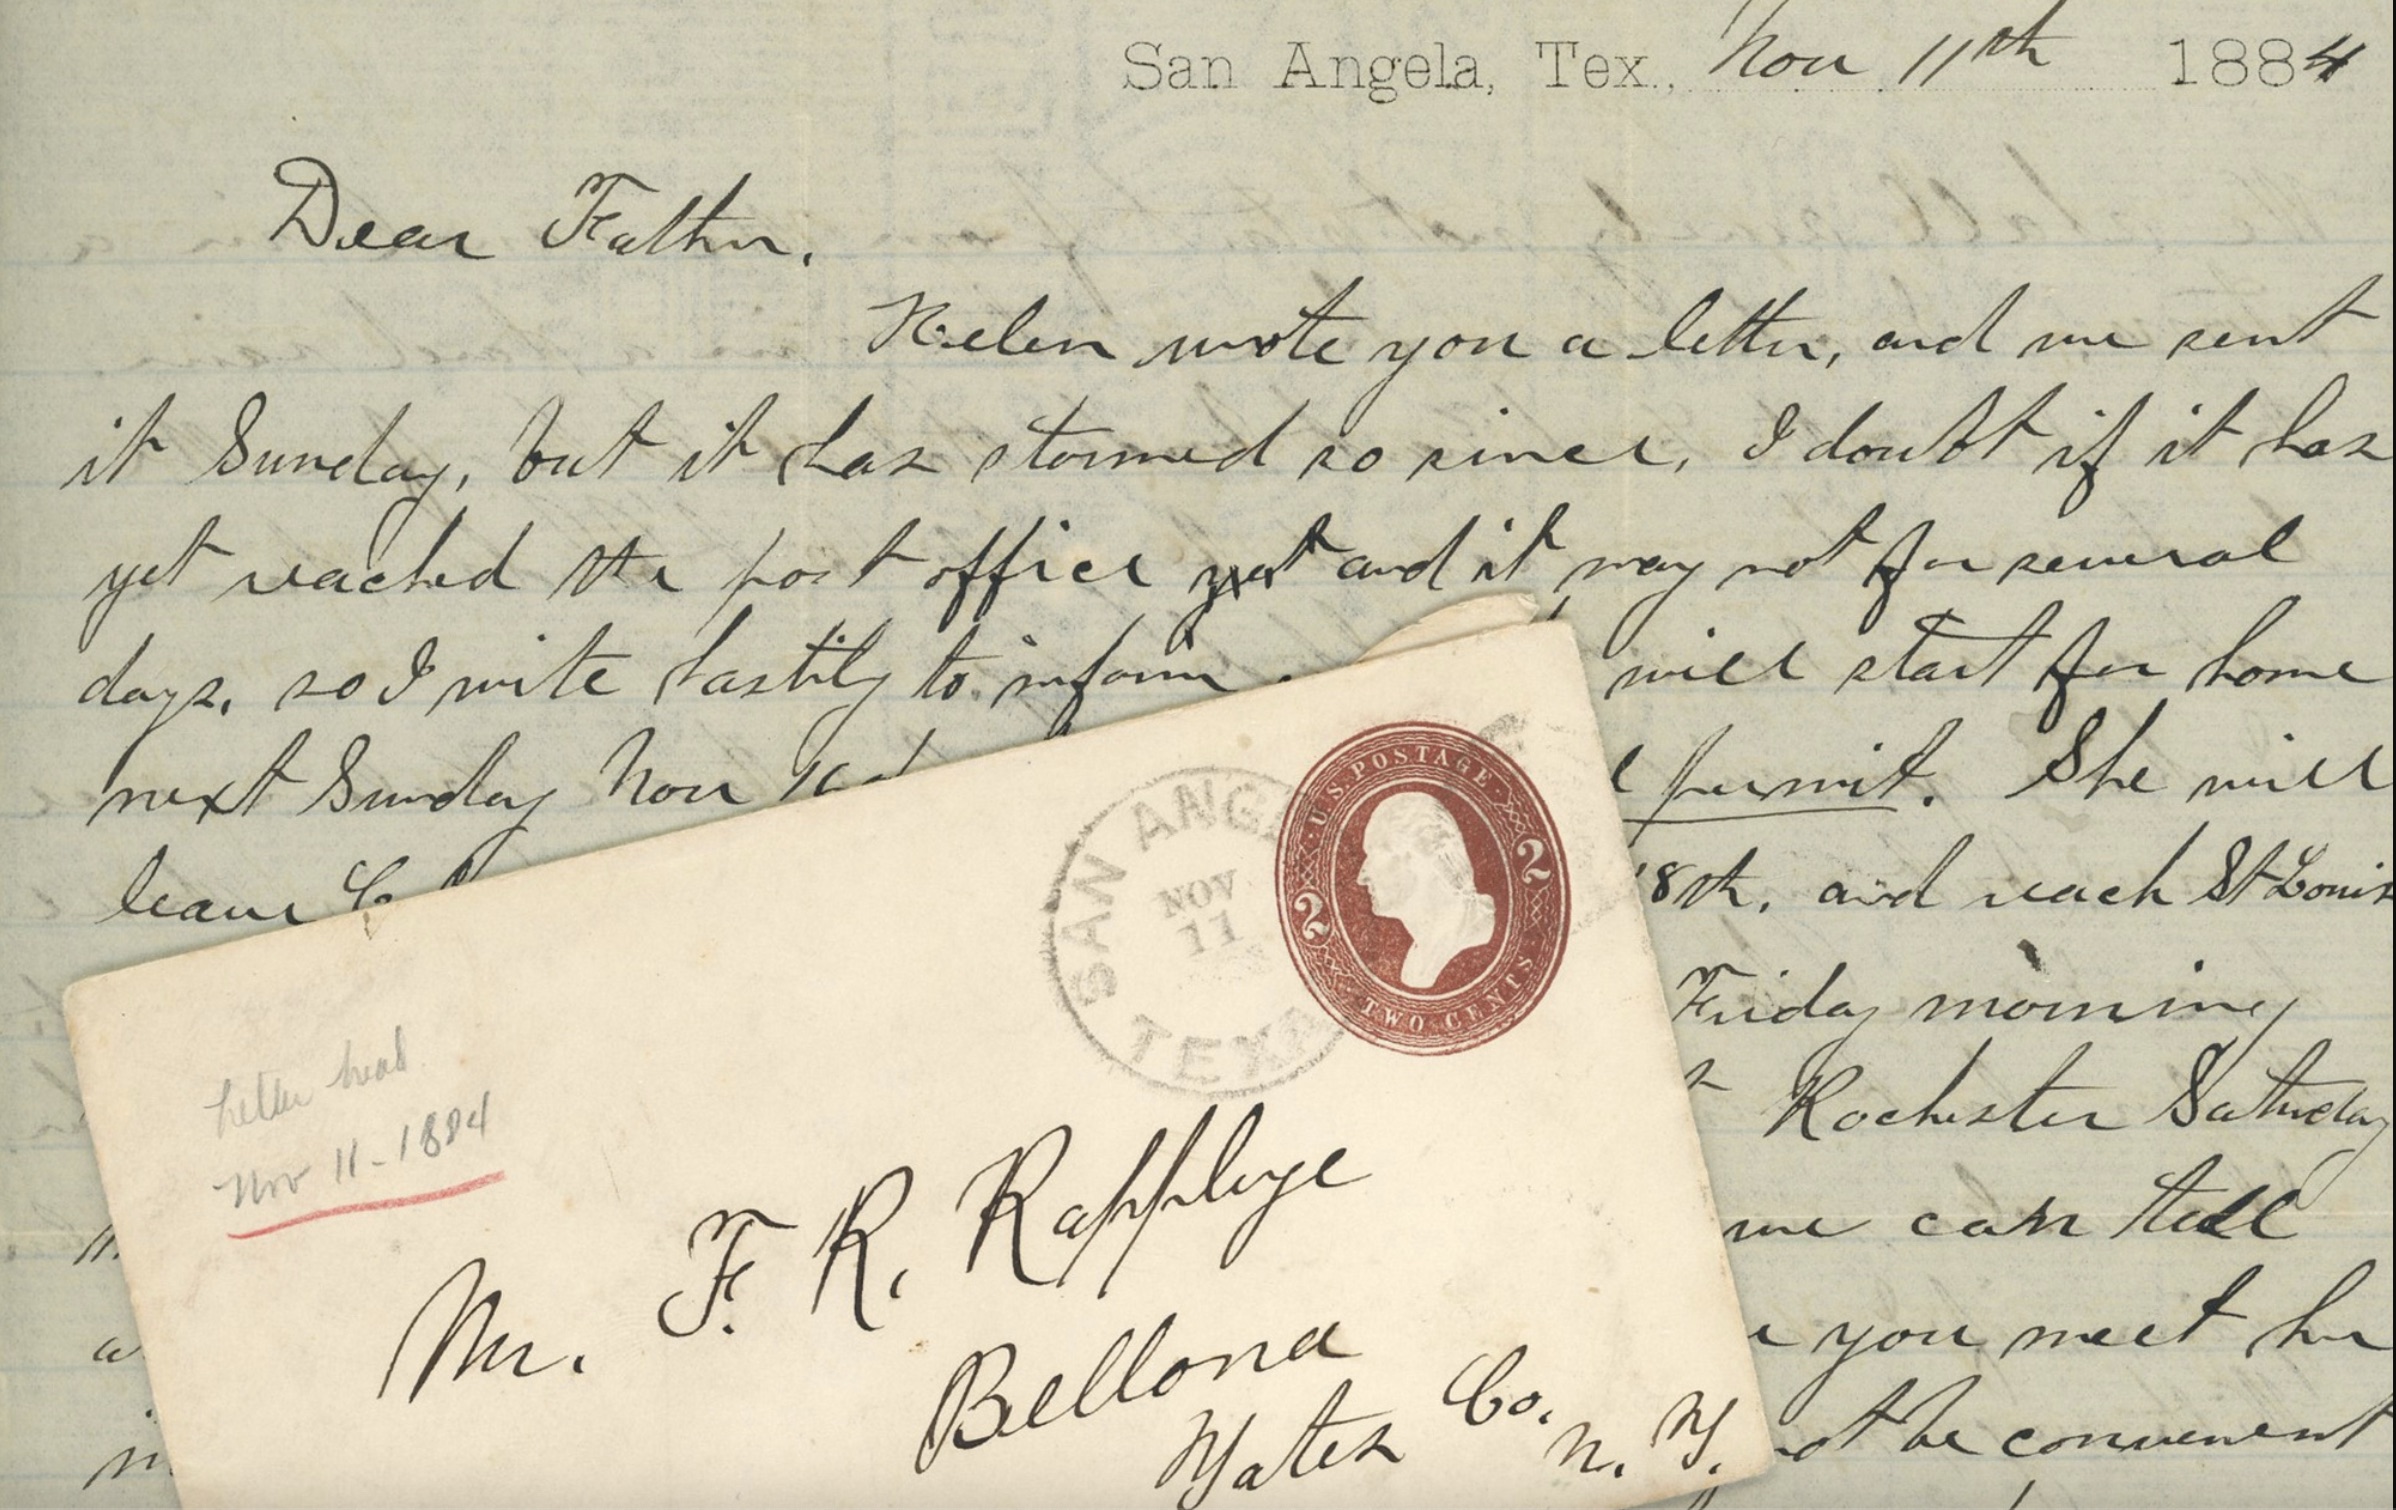 San Angela, Tex., Nov 11th 1884
Dear Father,
Helen wrote you a letter, and we sent
it Sunday, but it has stormed so since, I doubt if it has
yet reached the post office yet and it may not for several
days, so I write hastily to inform will start for home
next Sunday Nov permit. She will
leave 18th, and reach St Louis
Friday morning
Rochester Saturday
we can tell
you meet her
not be convenient
U.S. POSTAGE
2 2
TWO CENTS
SAN ANGE
NOV
11
TEXA
Letter head
Nov 11-1884
Mr. F. R. Rappleye
Bellona
Yates Co.
N. Y.